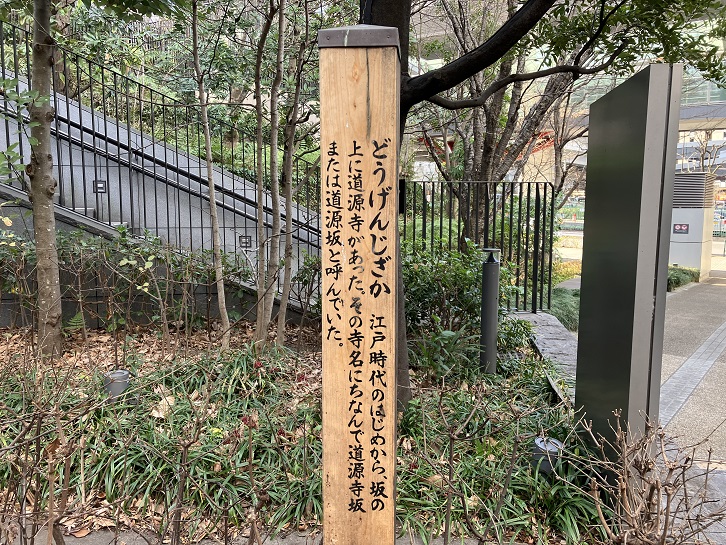 どうげんじざか 江戸時代のはじめから、坂の
上に道源寺があった。その寺名にちなんで道源寺坂
または道源坂と呼んでいた。